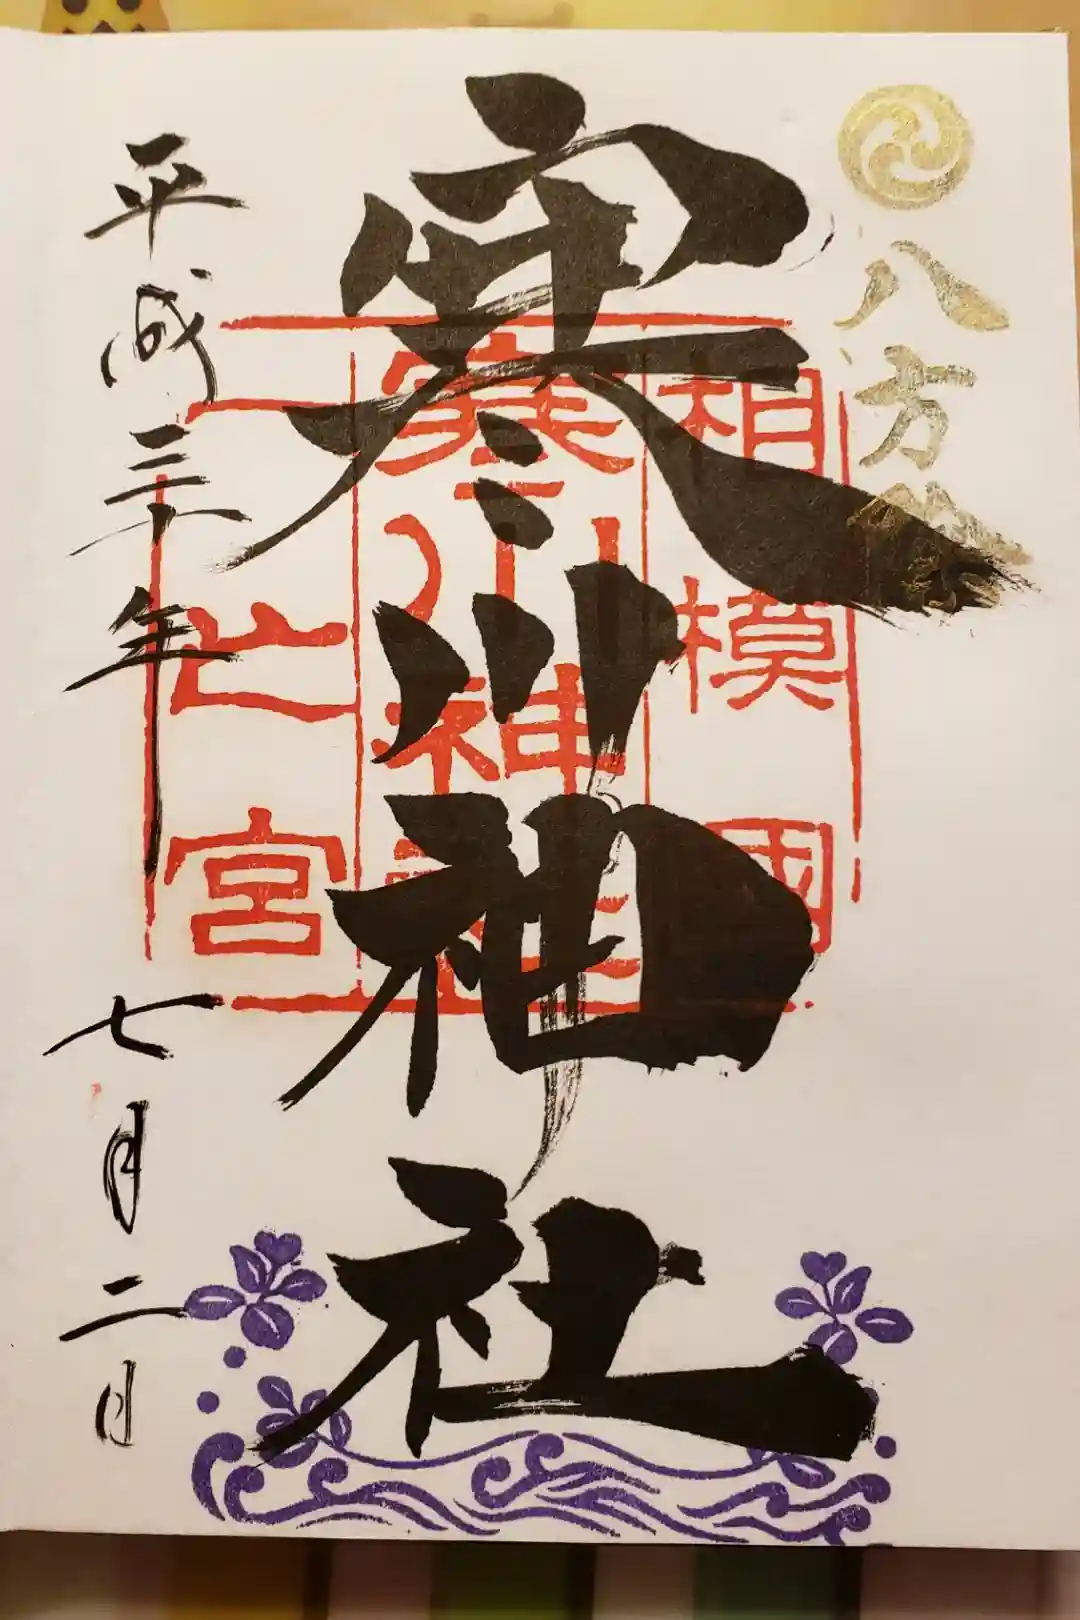 八方除
寒川神社
相模國
寒川神社
一之宮
平成三十年
七月二日